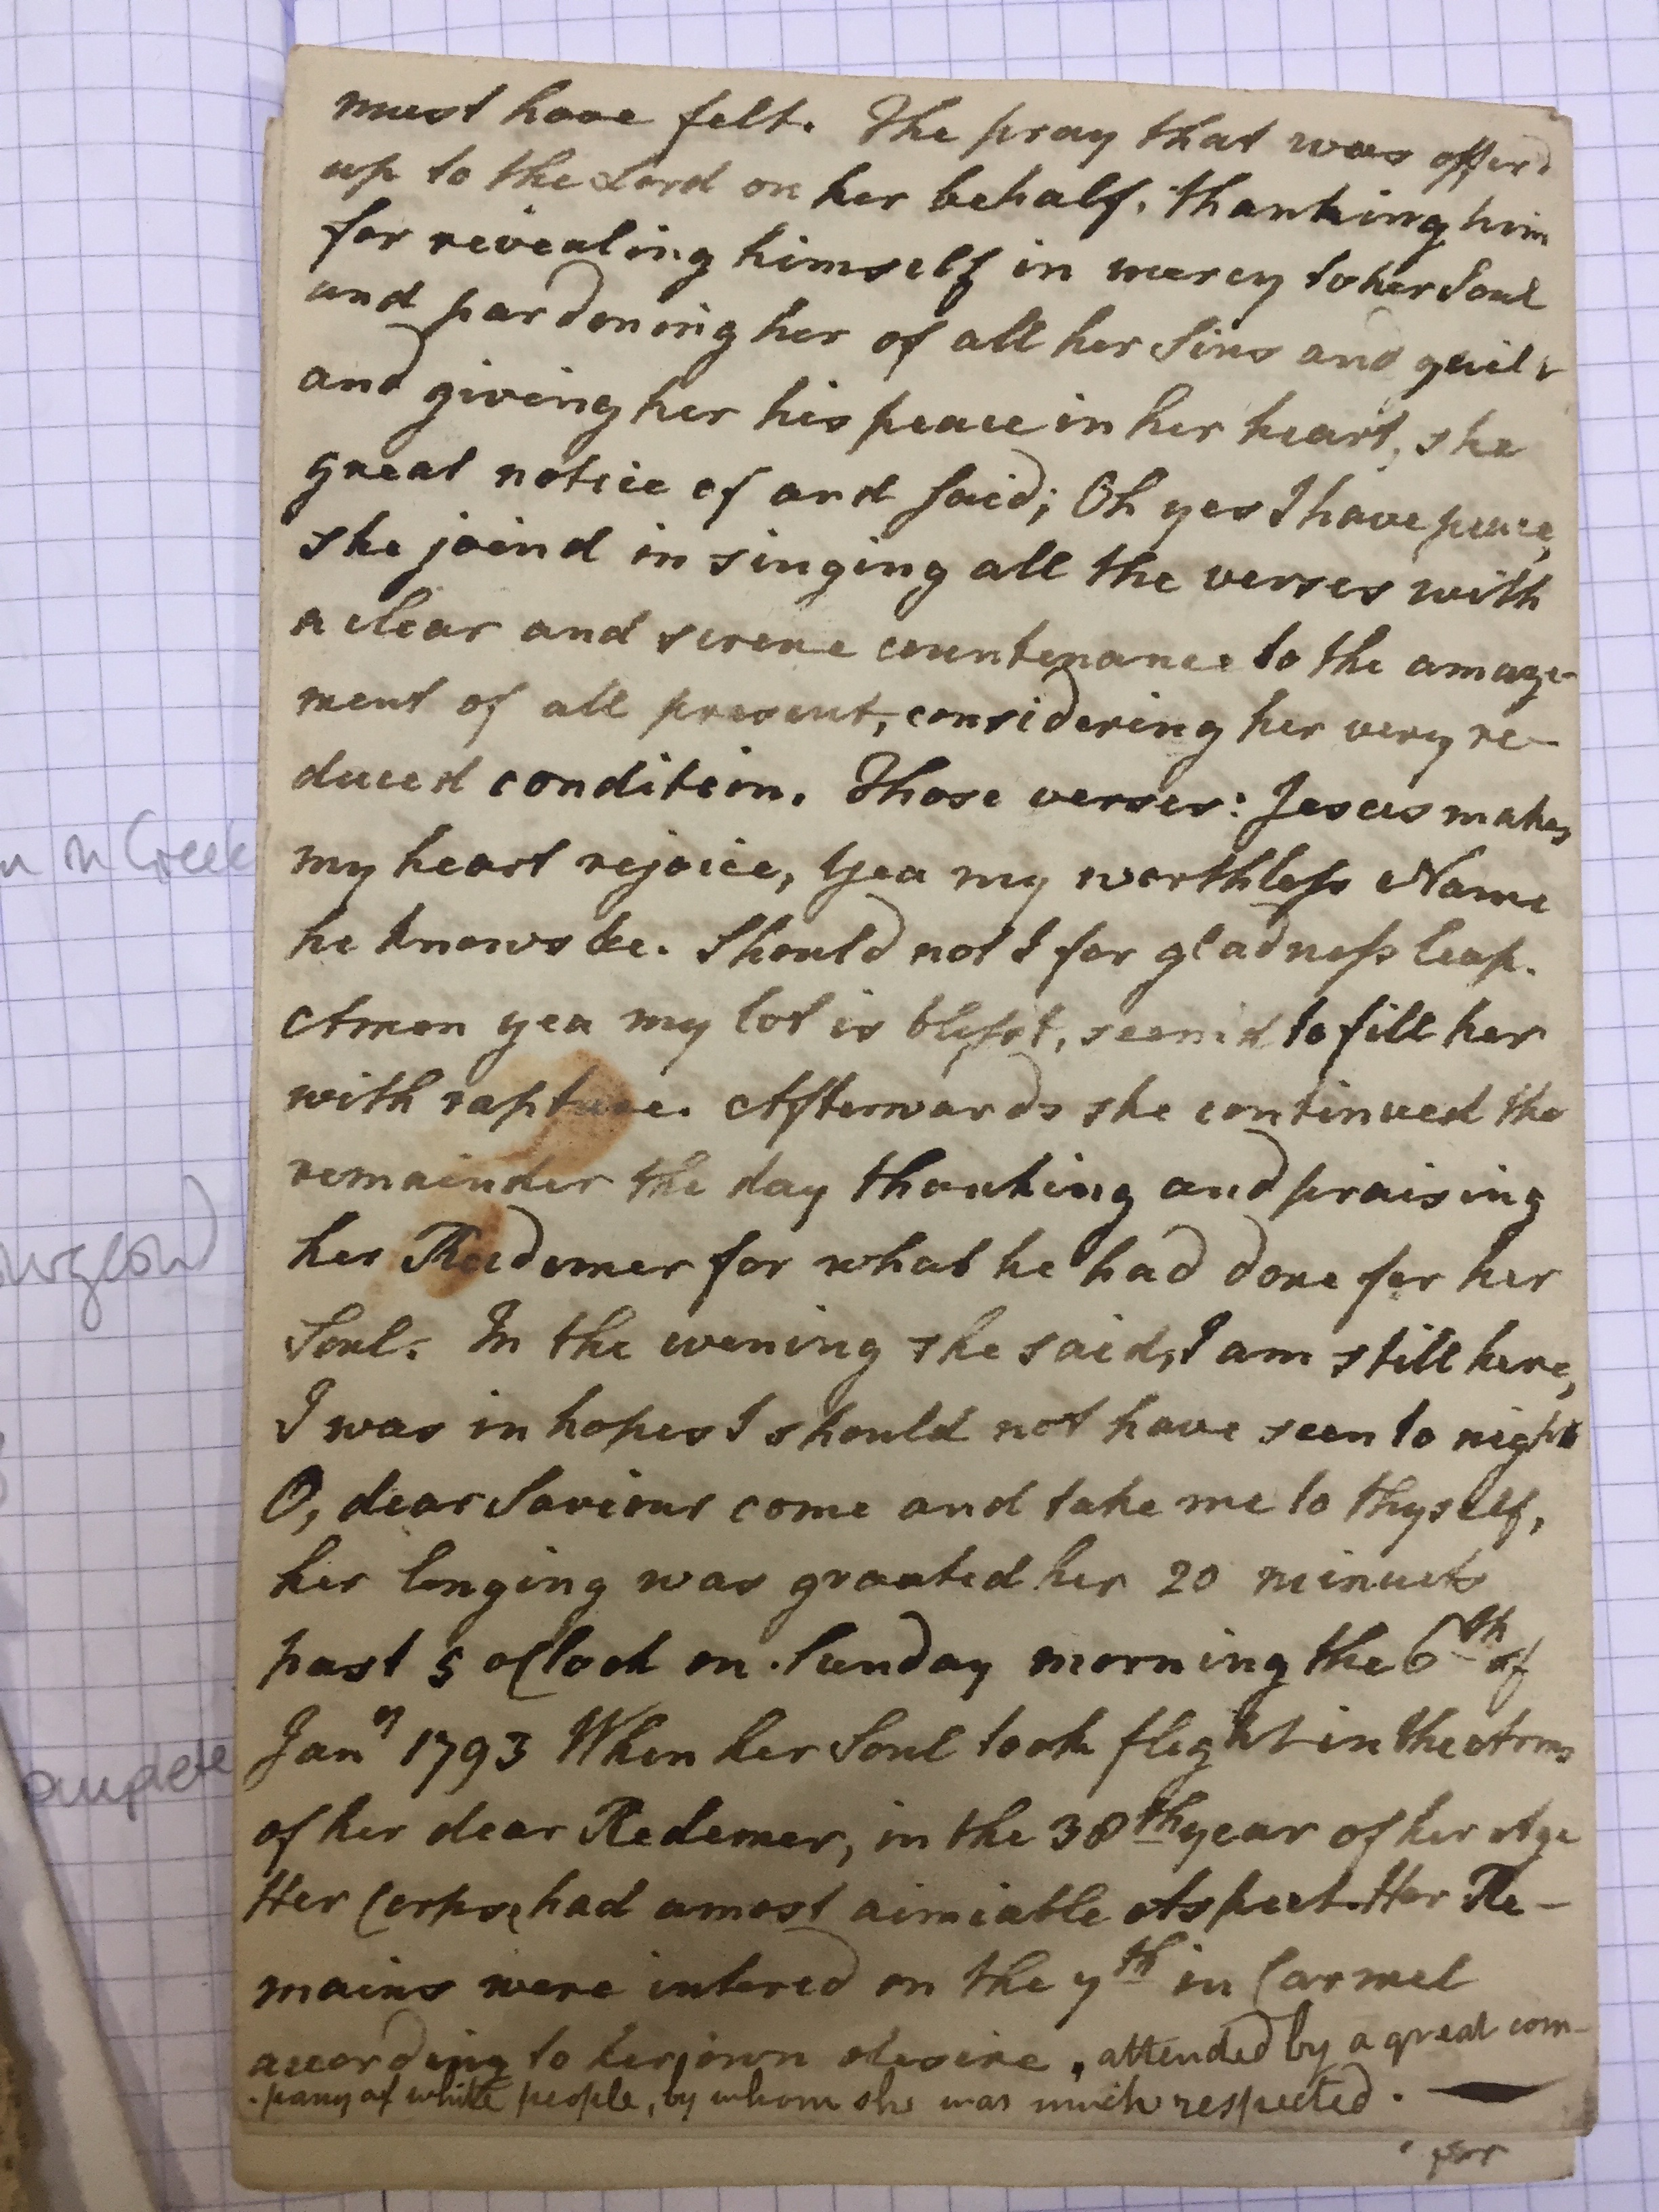 must have felt. The pray that was offerd
up to the Lord on her behalf, thanking him
for revealing himself in mercy to her Soul
and pardoning her of all her Sins and guilt
and giving her his peace in her heart, she
great notice of and Said; Oh yes I have peace,
she joind in singing all the verses with
a clear and serene countenance to the amaze-
ment of all present, considering her very re-
duced condition. Those verses: Jesus makes
my heart rejoice, Yea my worthless Name
he knows &c. Should not I for gladness leap.
Amen yea my lot is blesst, seem'd to fill her
with rapture. Afterwards she continued the
remainder the day thanking and praising
her Redemer for what he had done for her
Soul. In the evening she said, I am still here,
I was in hopes I should not have seen to night
O, dear Saviour come and take me to thyself,
her longing was granted her 20 minuets
past 5 oClock on Sunday morning the 6th of
Jany 1793 When her Soul took flight in the Arms
of her dear Redemer, in the 38th year of her Age
Her Corpse had a most aimiable Aspect. Her Re-
mains were intered on the 7th in Carmel
according to her own desire, attended by a great com-
-pany of white people, by whom she was much respected.